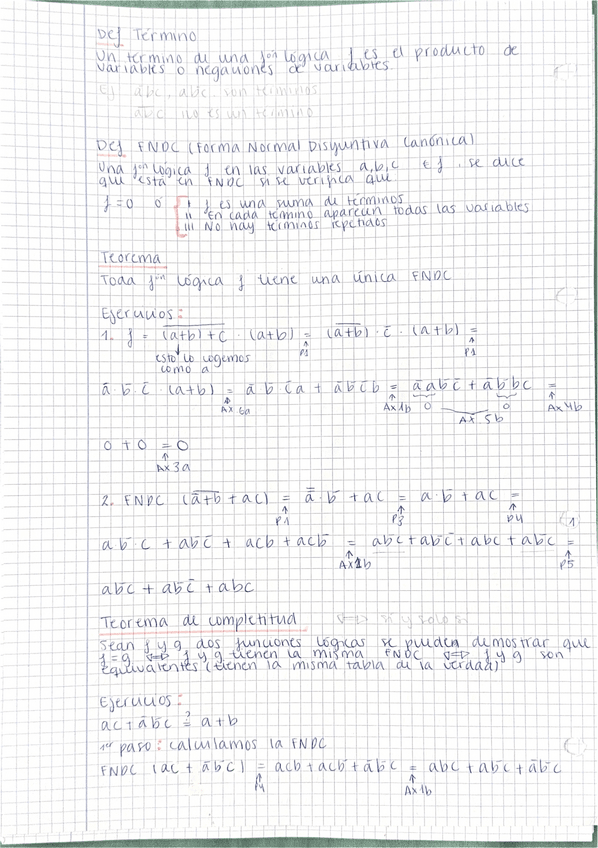 Def Término
Un término de una fᵒⁿ lógica f es el producto de
variables o negaciones de variables
Ej āb̄c, ab̄c son términos
no es un término
Def FNDC (Forma Normal Disyuntiva Canónica)
Una fᵒⁿ lógica f en las variables a,b,c se dice
que está en FNDC si se verifica que
f=0 ó { i f es una suma de términos
ii En cada término aparecen todas las variables
iii No hay términos repetidos
Teorema
Toda fᵒⁿ lógica f tiene una única FNDC
Ejercicios:
1. f = (a+b)+c · (a+b) = (a+b) · c̄ · (a+b) =
P1 P1
esto lo cogemos
como a
ā · b̄ · c̄ · (a+b) = ā b̄ c̄ a + ā b̄ c̄ b = ā a b̄ c̄ + ā b̄ b c̄ =
Ax 6a Ax 1b 0 0 Ax 4b
Ax 5b
0 + 0 = 0
Ax 3a
2. FNDC (ā+b + ac) = a̿ · b̄ + ac = a · b̄ + ac =
P1 P3 P4
ab̄ · c + ab̄c̄ + acb + acb̄ = ab̄c + ab̄c̄ + abc + ab̄c =
Ax1b P5
ab̄c + ab̄c̄ + abc
Teorema de completitud ⟺ si y solo si
Sean f y g dos funciones lógicas se pueden demostrar que
f=g ⟺ f y g tienen la misma FNDC ⟺ f y g son
equivalentes (tienen la misma tabla de la verdad)
Ejercicios:
ac + āb̄c ≟ a+b
1ᵉʳ paso: calculamos la FNDC
FNDC (ac + āb̄c) = acb + acb̄ + āb̄c = abc + ab̄c + āb̄c
P4 Ax1b